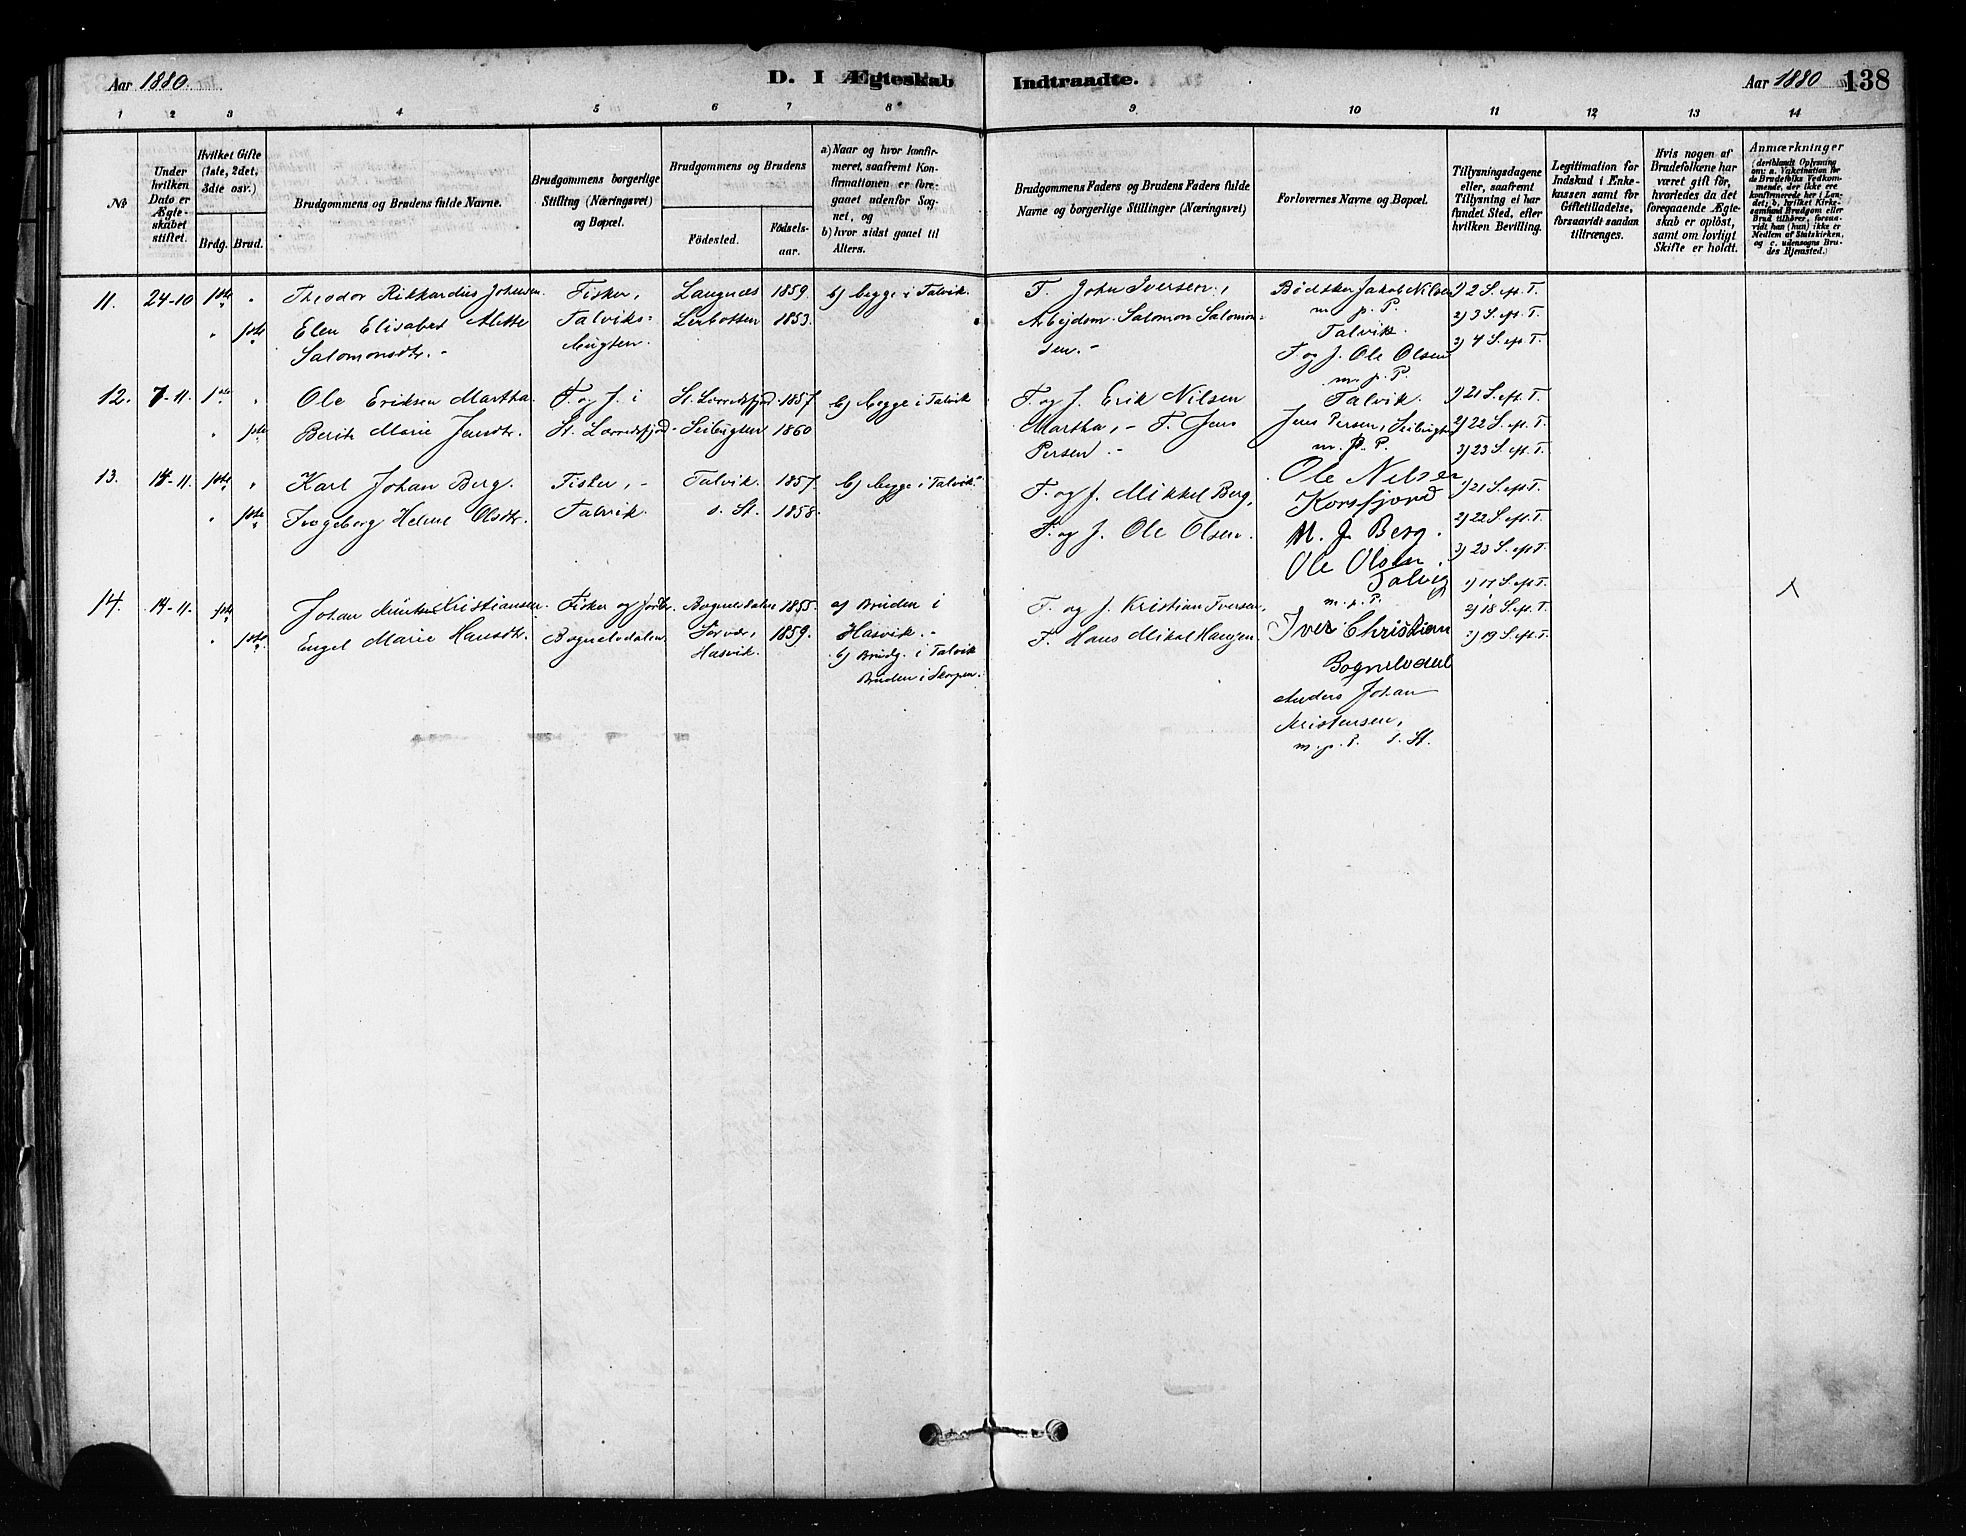 Aar 1880.
D. I Ægteskab Indtraadte.
Aar 1880 138
1 2 3 4 5 6 7 8 9 10 11 12 13 14
No
Under hvilken Dato er Ægteskabet stiftet.
Hvilket Gifte (1ste, 2det, 3die osv.)
Brdg. Brud.
Brudgommens og Brudens fulde Navne.
Brudgommens borgerlige Stilling (Næringsvei) og Bopæl.
Brudgommens og Brudens
Födested.
Födselsaar.
a) Naar og hvor konfirmeret, saafremt Konfirmationen er foregaaet udenfor Sognet, og
b) hvor sidst gaaet til Alters.
Brudgommens Faders og Brudens Faders fulde Navne og borgerlige Stillinger (Næringsvei)
Forlovernes Navne og Bopæl.
Tillysningsdagene eller, saafremt Tillysning ei har fundet Sted, efter hvilken Bevilling.
Legitimation for Indskud i Enkekassen samt for Giftetilladelse, forsaavidt saadan tiltrænges.
Hvis nogen af Brudefolkene har været gift för, hvorledes da det foregaaende Ægteskab er oplöst, samt om lovligt Skifte er holdt.
Anmærkninger
(deriblandt Oplysning om: a. Vakcination for de Brudefolks Vedkommende, der ikke ere konfirmerede her i Landet; b, hvilket Kirkesamfund Brudgom eller Brud tilhörer, forsaavidt han (hun) ikke er Medlem af Statskirken, og c. udensogns Brudes Hjemsted.)
11. 24-10 1ste " Theodor Rikkardius Johnsen. Fisker, Langnæs 1859. b) begge i Talvik. F. John Iversen, Bödsker Jakob Nilsen 1) 2 S. eft. T.
" 1ste Elen Elisabet Alette Talviks- Lerbotten 1853. Arbejdsm. Salomon Salomon- m. p. P. 2) 3 S. eft. T.
Salomonsdtr. - bugten. sen. - Talvik. 3) 4 S. eft. T.
F. og J. Ole Olsen
m. p. P.
12. 7-11. 1ste " Ole Eriksen Martha. F. og J. i St. Lerredsfjord 1857. b) begge i Talvik F. og J. Erik Nilsen Talvik. 1) 21 S. eft. T.
" 1ste Berit Marie Jensdtr. St. Lerredsfjord. Seibugten 1860 Martha, - F. Jens Jens Persen, Seibugten 2) 22 S. eft. T.
Persen. - m. p. P. 3) 23 S. eft. T.
13. 14-11. 1ste " Karl Johan Berg. Fisker, - Talvik. 1857. b) begge i Talvik. F. og J. Mikkel Berg, Ole Nelsen 1) 21 S. eft. T.
Korsfjord
" 1ste Ingeborg Heline Olsdtr. Talvik. s. St. 1858. F. og J. Ole Olsen. M. J. Berg. 2) 22 S. eft. T.
Ole Olsen. 3) 23 S. eft. T.
Talvig
14. 14-11. 1ste Johan Kristiansen. Fisker og Jordbr. Bognelvdalen 1855. a) Bruden i F. og J. Kristian Iversen, m. p. P. 1) 17 S. eft. T.
" 1ste Engel Marie Hansdtr. Bognelvdalen. Sörvær, 1859. Hasvik. - F. Hans Mikal Hansen. Iver Christian 2) 18 S. eft. T.
Hasvik. b) Brudg. i Talvik 3) 19 S. eft. T.
Bruden i Skogen. Bognelvdal
Anders Johan
Kristensen,
m. p. P. s. St.